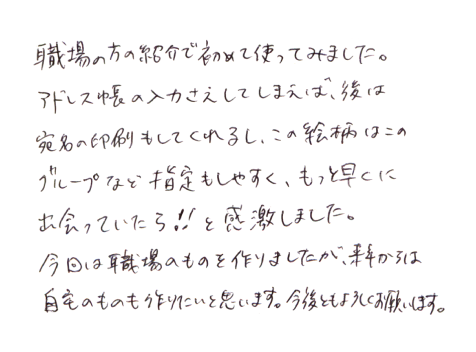 職場の方の紹介で初めて使ってみました。
アドレス帳の入力さえしてしまえば、後は
宛名の印刷もしてくれるし、この絵柄はこの
グループなど指定もしやすく、もっと早くに
出会っていたら!!と感激しました。
今回は職場のものを作りましたが、来年からは
自宅のものも作りたいと思います。今後ともよろしくお願いします。